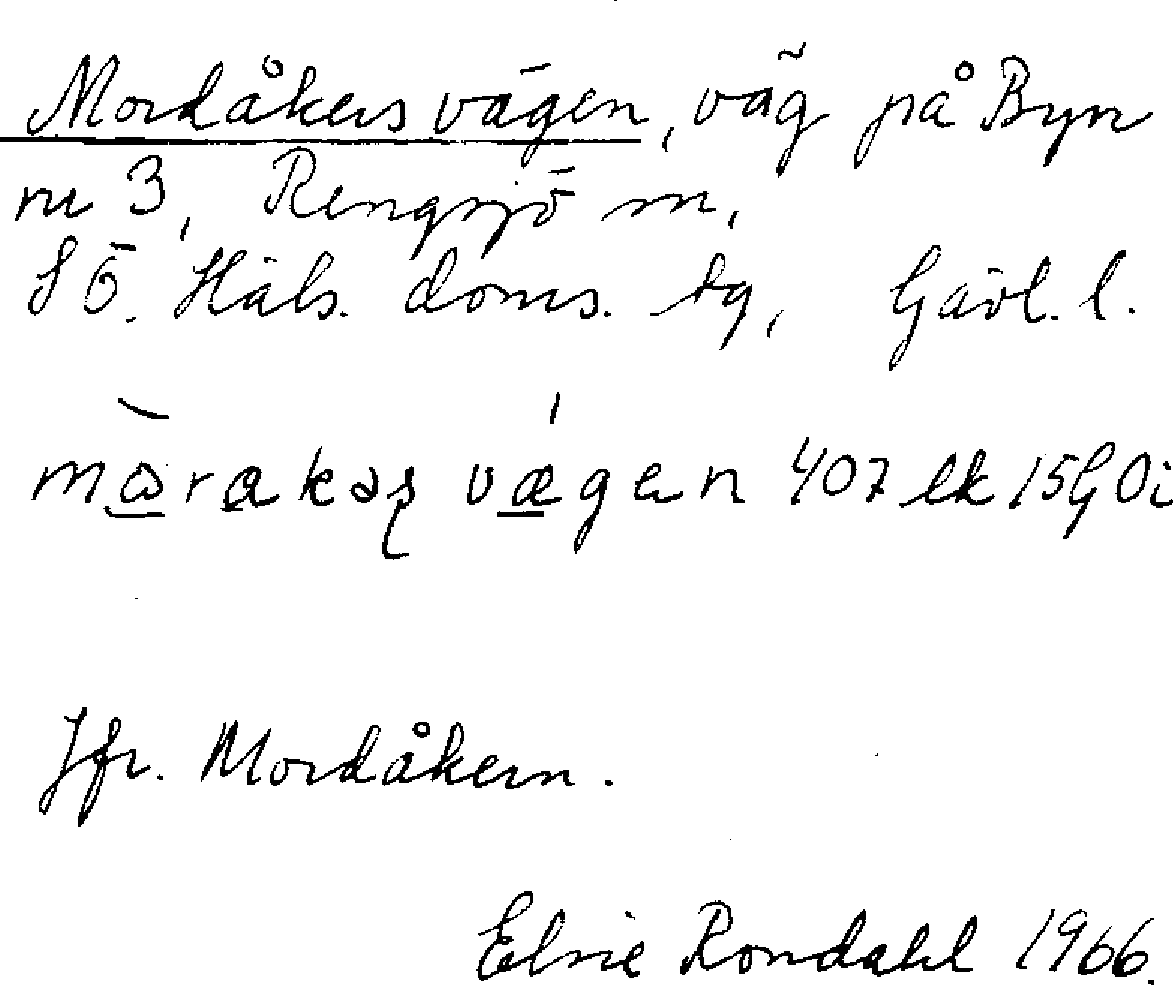 Mordåkersvägen, väg på Byn
nr 3, Rengsjö sn,
SÖ. Häls. doms. tg, Gävl. l.
mɷ̀rakəʂ vǽgen 407 ek 15G0i
Jfr. Mordåkern.
Elsie Rondahl 1966.